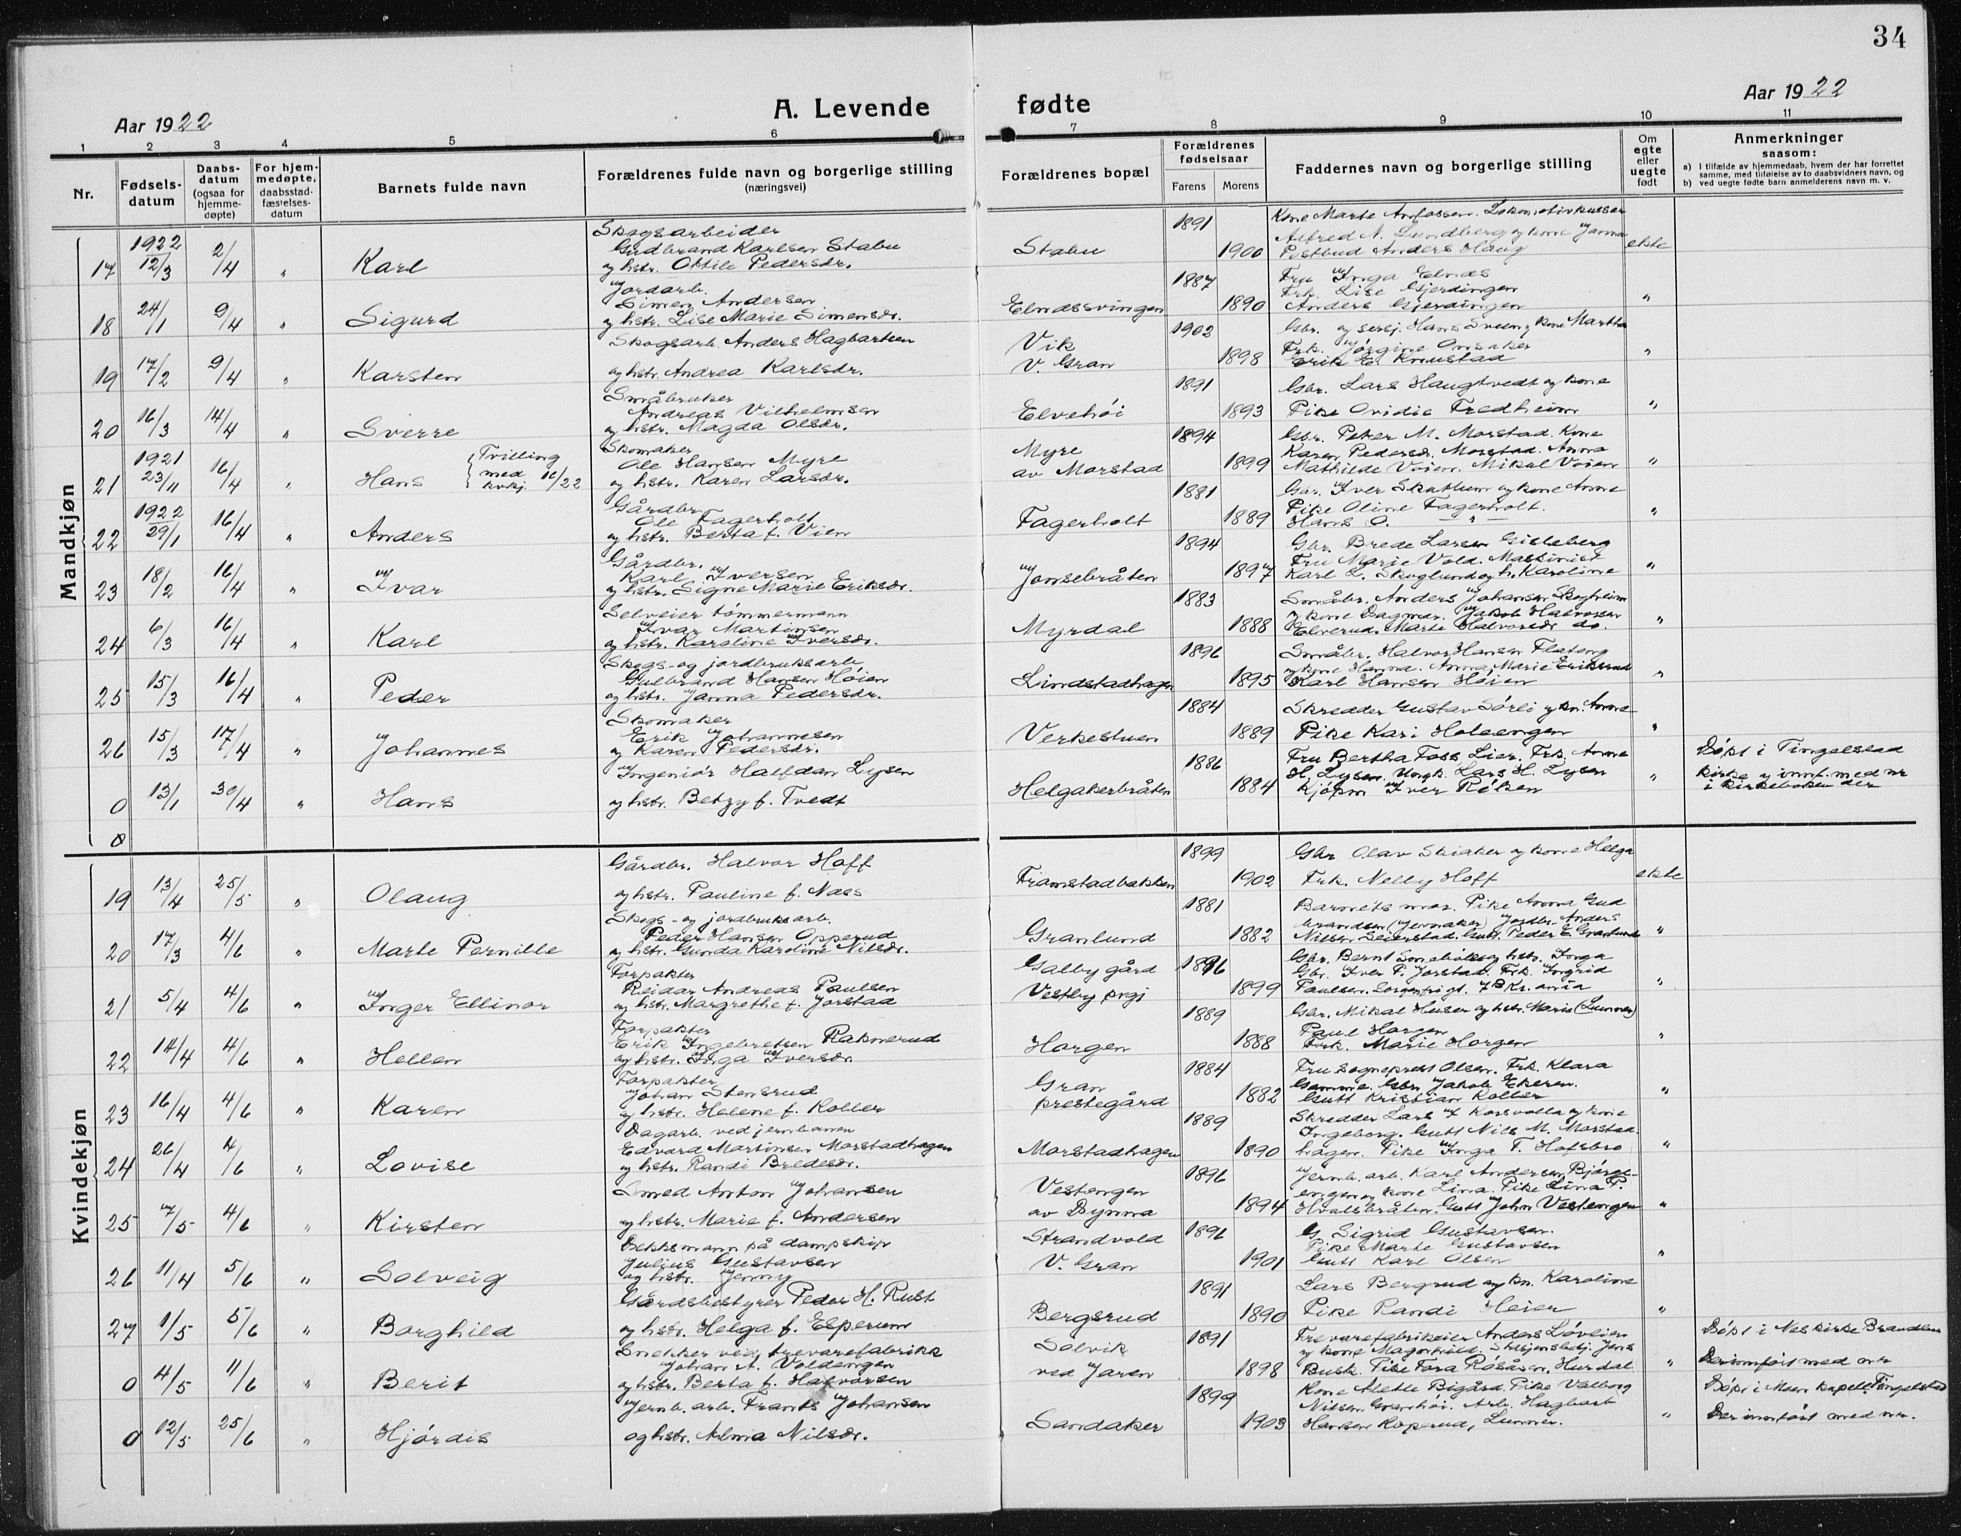 34
Aar 1922
A. Levende fødte
Aar 1922
1 2 3 4 5 6 7 8 9 10 11
Nr.
Fødsels-datum
Daabs-datum (ogsaa for hjemme-døpte)
For hjem-medøpte, daabsstad-fæstelses-datum
Barnets fulde navn
Forældrenes fulde navn og borgerlige stilling (næringsvei)
Forældrenes bopæl
Forældrenes fødselsaar
Farens Morens
Faddernes navn og borgerlige stilling
Om egte eller uegte født
Anmerkninger saasom:
a) I tilfælde av hjemmedaab, hvem der har forrettet samme, med tilføielse av to daabsvidners navn, og
b) ved uegte fødte barn anmelderens navn m. v.
Mandkjøn
17 1922 12/3 2/4 " Karl
Skogsarbeider
Gudbrand Karlsen Stabu
og hstr. Ottile Pedersdr.
Stabu 1891 1900
Kone Marte Anfossen. Lokomotivpusser
Alfred N. Lundberg og kone Janna
Postbud Anders Haug
ekte
18 24/1 9/4 " Sigurd
Jordarb.
Simen Andersen
og hstr. Lise Marie Simensdr.
Elnessvingen 1887 1890
Fru Inga Elnæs
Frk. Lise Gjerdingen
Anders Gjerdingen
"
19 17/2 9/4 " Karsten
Skogsarb. Anders Hagbartsen
og hstr. Andrea Karlsdr.
Vik
V. Gran 1902 1898
Gbr. og sersj. Hans Sveen og kone Martha
Frk. Jørgine Onsaker
Erik E. Knustad
"
20 16/3 14/4 " Sverre
Småbruker
Andreas Vilhelmsen
og hstr. Magda Olsdr.
Elvehøi 1891 1893
Gbr. Lars Haugtvedt og kone
Pike Ovidie Fredheim
"
21 1921 23/11 16/4 " Hans
Tvilling
med
kvkj. 16/22
Skomaker
Ole Hansen Myre
og hstr. Karen Larsdr.
Myre
av Morstad 1894 1899
Gbr. Peter M. Morstad. Kone
Karen Pedersdr. Morstad. Anna
Mathilde Voien. Mikal Voien
"
22 1922 29/1 16/4 " Anders
Gårdbr.
Ole Fagerholt
og hstr. Berta f. Vien
Fagerholt 1881 1889
Gbr. Iver Skattum og kone Anne
Pike Oline Fagerholt.
Hans O. — " —
"
23 18/2 16/4 " Ivar
Gårdbr.
Karl Iversen
og hstr. Signe Marie Eriksdr.
Jonsebråten 1894 1897
Gbr. Brede Larsen Gisleberg
Fru Marie Vold. Maskinist
Karl L. Skoglund og h. Karoline
"
24 6/3 16/4 " Karl
Selveier tømmermann
Ivar Martinsen
og hstr. Karoline Iversdr.
Myrdal 1883 1888
Småbr. Anders Johansen Skogheim
og kone Dagmar. Jakob Halvorsen
Elverud. Marte Halvorsdr do.
"
25 15/3 16/4 " Peder
Skogs- og jordbruksarb.
Gulbrand Hansen Høien
og hstr. Janna Pedersdr.
Lindstadhagen 1896 1895
Småbr. Halvor Hansen Flateng
og kone Hanna. Anna Marie Eriksrud
Karl Hansen Høien
"
26 15/3 17/4 " Johannes
Skomaker
Erik Johannesen
og Karen Pedersdr.
Verkestuen 1884 1889
Skredder Gustav Sørli og kn. Anne
Pike Kari Holsengen
"
0 13/1 30/4 " Hans
Ingeniør Halfdan Lysen
og hstr. Betzy f. Tvedt
Helgakerbråten 1886 1884
Fru Bertha Foss Lier. Frk. Anne
H. Lysen. Ungk. Lars H. Lysen
Kjøpm Iver Røken
"
Døpt i Tingelstad
kirke og innf. med nr
i kirkeboken der
0
Kvindekjøn
19 13/4 25/5 " Olaug
Gårdbr. Halvor Hoff
og hstr. Pauline f. Næss
Framstadbakken 1899 1902
Gbr Olav Skiaker og kone Helga
Frk. Nelly Hoff
ekte
20 17/3 4/6 " Marte Pernille
Skogs- og jordbruksarb.
Peder Hansen Opperud
og hstr. Gunda Karoline Nilsdr.
Granlund 1881 1882
Barnets mor. Pike Anna Gud
brandsen (Jevnaker) Jordbr. Anders
Nilsen Seierstad. Gutt Peder E Granlund
"
21 5/4 4/6 " Inger Ellinor
Forpakter
Reidar Andreas Paulsen
og hstr. Margrethe f. Jorstad
Galby gård
Vestby prgj 1896 1899
Gbr. Iver P. Jorstad. Frk. Ingrid
"
22 14/4 4/6 " Hellen
Forpakter
Erik Ingebretsen Raknerud
og hstr. Inga Iversdr.
Horgen 1889 1888
Gbr. Mikal Huser og hstr. Marie (Lunner)
Paul Horgen
Frk. Marie Horgen
"
23 16/4 4/6 " Karen
Forpakter
Johan Stensrud
og hstr. Helene f. Koller
Gran
prestegård 1884 1882
Fru Sogneprest Olsen. Frk. Klara
Gamme. Gbr Jakob Ekeren.
Gutt Kristian Koller
"
24 26/4 4/6 " Lovise
Dagarb. ved jernbanen
Edvard Martinsen Morstadhagen
og hstr. Randi Bredesdr.
Morstadhagen 1889 1890
Skredder Lars J. Korsvolla og kone
Ingeborg. Gutt Nils M. Morstad
hagen. Pike Inga T. Hofsbro
"
25 7/5 4/6 " Kirsten
Smed Anton Johansen
og hstr. Marie f. Andersen
Vestengen
av Dynna 1896 1894
Jernb. arb. Karl Andersen Bjørge-
engen og kone Lina. Pike Lina P.
Hvalsbråten. Gutt John Vestengen
"
26 11/4 5/6 " Solveig
Dekksmann på dampskip
Julius Gustavsen
og hstr. Jenny
Strandvold
V. Gran 1896 1901
G. Sigrid Gustavsen.
Pike Marte Gustavsen
Gutt Karl Olsen
"
27 1/5 5/6 " Borghild
Gårdsbestyrer Peder H. Rust
og hstr. Helga f. Esperum
Bergsrud 1891 1890
Lars Bergsrud og kn. Karoline
Pike Randi Heier
"
0 4/5 11/6 " Berit
Snekker ved trevarefabrikk
Johan A. Voldengen
og hstr. Berta f. Halvorsen
Solvik
ved Jaren 1891 1898
Trevarefabrikeier Anders Løveien
Busk. Pike Tora Røsåsen, Hurdal
"
Døpt i Nes kirke Brandbu
Der innført med nr
0 12/5 25/6 " Hjørdis
Jernb. arb. Frants Johansen
og hstr. Alma Nilsdr.
Sandaker 1899 1903
Kone Alette Bigård. Pike Valborg
Nilsen Granhøi. Arb. Hagbart
Hansen Roperud, Lunner.
"
Døpt i Moen kapell Tingelstad
Der innført med nr.